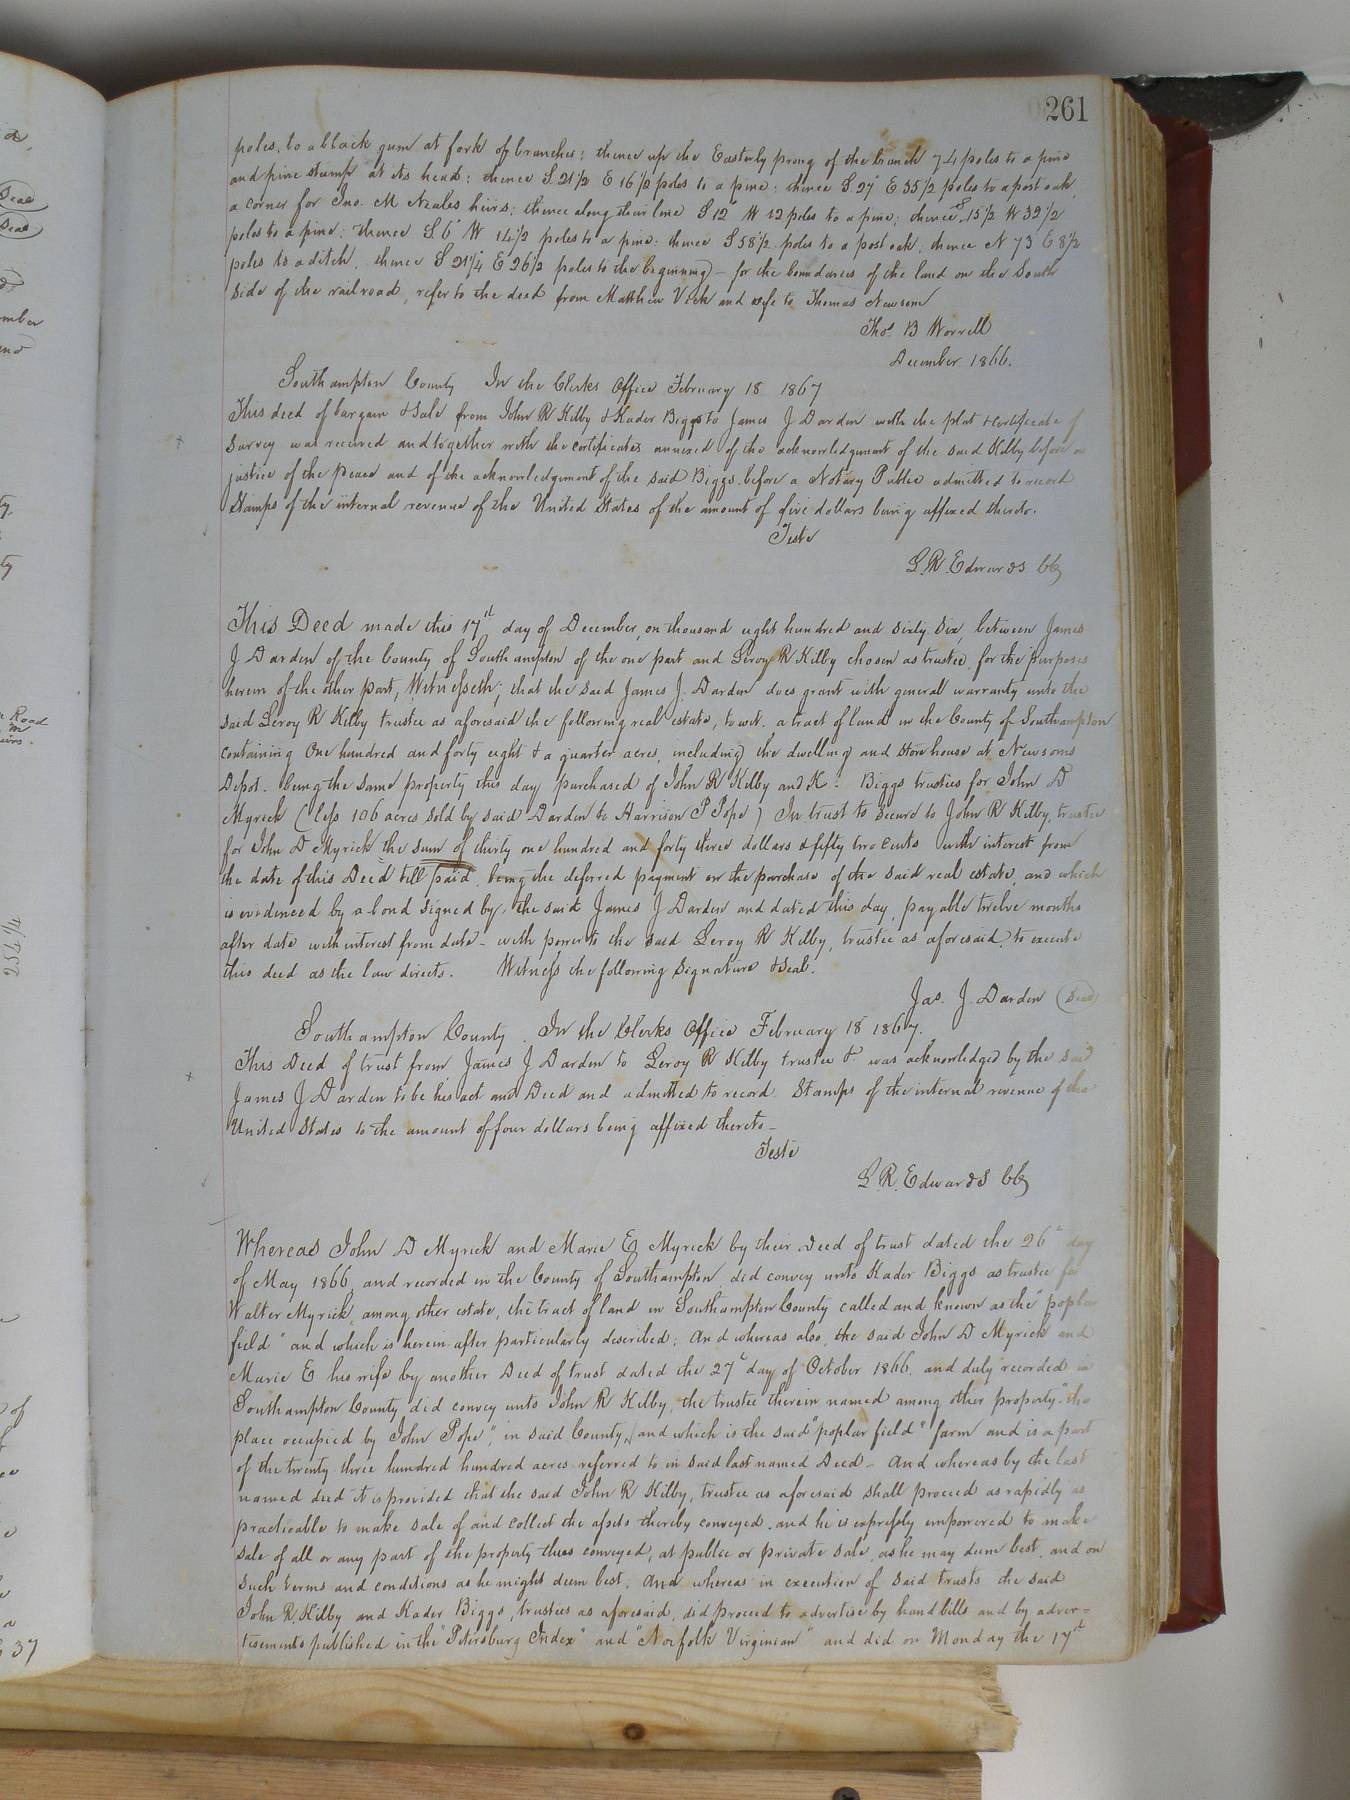 261
poles, to a black gum at fork of branches; thence up the Easterly prong of the branch 74 poles to a pine
and pine stump at its head; thence S. 21½ E 16½ poles to a pine; thence S. 27 E 35½ poles to a post oak
a corner for Jno. M Neales heirs; thence along their line S 12 W 12 poles to a pine; thence S 15½ W 32½
poles to a pine; thence S. 6 W 14½ poles to a pine; thence S 58½ poles to a post oak, thence N 73 E 8½
poles to a ditch, thence S 21¼ E 26½ poles to the beginning) – for the boundaries of the land on the South
side of the railroad, refer to the deed from Matthew Vick and wife to Thomas Newsom
Thos. B Worrell
December 1866.
Southampton County In the Clerks Office February 18 1867
This deed of bargain & sale from John R Kilby & Kader Biggs to James J Darden with the plat & certificate of
survey was received and together with the certificates annexed of the acknowledgment of the said Kilby before a
justice of the peace and of the acknowledgement of the said Biggs before a Notary Public admitted to record
Stamps of the internal revenue of the United States of the amount of five dollars being affixed thereto.
Teste
L. R. Edwards CC
This Deed made this 17th day of December, on thousand eight hundred and sixty six, between James
J Darden of the County of Southampton of the one part and Leroy R Kilby chosen as trustee, for the purposes
herein of the other part, Witnesseth; that the said James J. Darden does grant with general warranty unto the
said Leroy R Kilby trustee as aforesaid the following real estate, to wit. a tract of land in the County of Southampton
containing One hundred and forty eight & a quarter acres, including the dwelling and store house at Newsoms
Depot. being the same property this day purchased of John R Kilby and K. Biggs trusties for John D
Myrick (less 106 acres sold by said Darden to Harrison P Pope) In trust to secure to John R Kilby, trustee
for John D Myrick the sum of thirty one hundred and forty three dollars & fifty two cents with interest from
the date of this Deed till paid, being the deferred payment on the purchase of the said real estate, and which
is evidenced by a bond signed by the said James J Darden and dated this day, payable twelve months
after date with interest from date – with power to the said Leroy R Kilby, trustee as aforesaid, to execute
this deed as the law directs. Witness the following signature & seal.
Jas. J. Darden (Seal)
Southampton County. In the Clerks Office February 18 1867.
This Deed of trust from James J Darden to Leroy R Kilby trustee &c was acknowledged by the said
James J Darden to be his act and Deed and admitted to record. Stamps of the internal revenue of the
United States to the amount of four dollars being affixed thereto –
Teste
L. R. Edwards CC
Whereas John D Myrick and Marie E Myrick by their Deed of trust dated the 26th day
of May 1866, and recorded in the County of Southampton, did convey unto Kader Biggs as trustee for
Walter Myrick, among other estate, the tract of land in Southampton County called and known as the "poplar
field" and which is herein after particularly described; And whereas also, the said John D Myrick and
Marie E his wife by another Deed of trust dated the 27th day of October 1866, and duly recorded in
Southampton County did convey unto John R Kilby, the trustee therein named among other property "the
place occupied by John Pope", in said County, and which is the said "poplar field" farm and is a part
of the twenty three hundred hundred acres referred to in said last named Deed – And whereas by the last
named deed it is provided that the said John R Kilby, trustee as aforesaid shall proceed as rapidly as
practicable to make sale of and collect the assets thereby conveyed. and he is expressly empowered to make
sale of all or any part of the property thus conveyed, at public or private sale, as he may deem best, and on
such terms and conditions as he might deem best. And whereas in execution of said trusts the said
John R. Kilby and Kader Biggs, trusties as aforesaid, did proceed to advertise by hand bills and by adver=
tisements published in the "Petersburg Index" and "Norfolk Virginian" and did on Monday the 17th